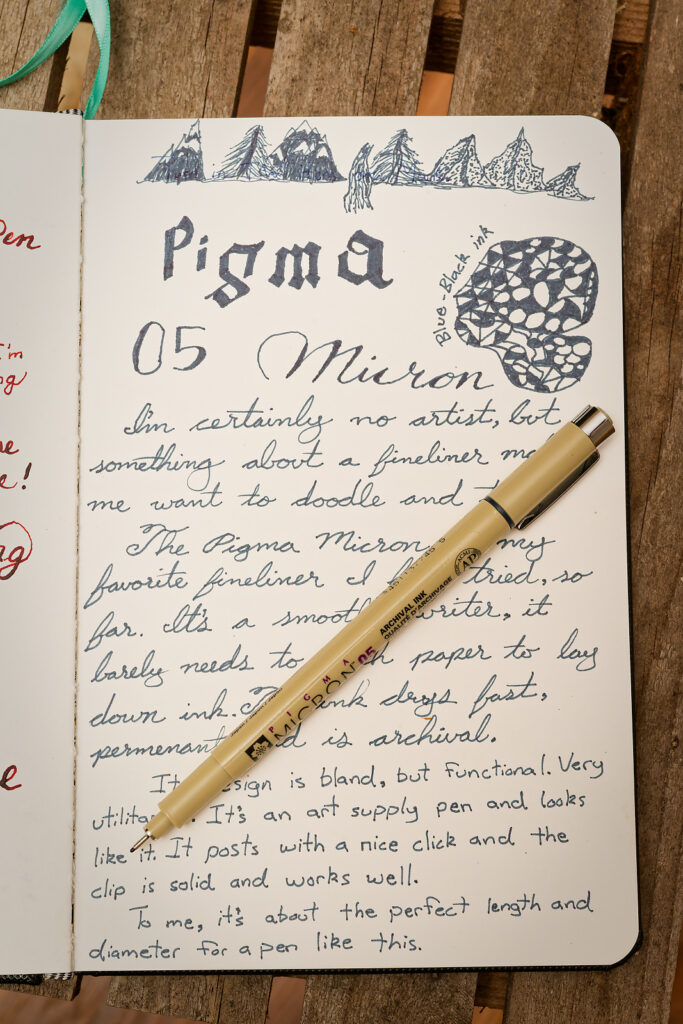 Pen
I'm
ng
e!
Pigma
Blue-Black ink
05 Micron
I'm certainly no artist, but
something about a fineliner
me want to doodle and
The Pigma Micron my
favorite fineliner I tried, so
far. It's a smooth writer, it
barely needs to paper to lay
down ink. ink drys fast,
permenant is archival.
design is bland, but functional. Very
It's an art supply pen and looks
like it. It posts with a nice click and the
clip is solid and works well.
To me, it's about the perfect length and
diameter for a pen like this.
PIGMA
MICRON 05
ARCHIVAL INK
QUALITÉ D'ARCHIVAGE